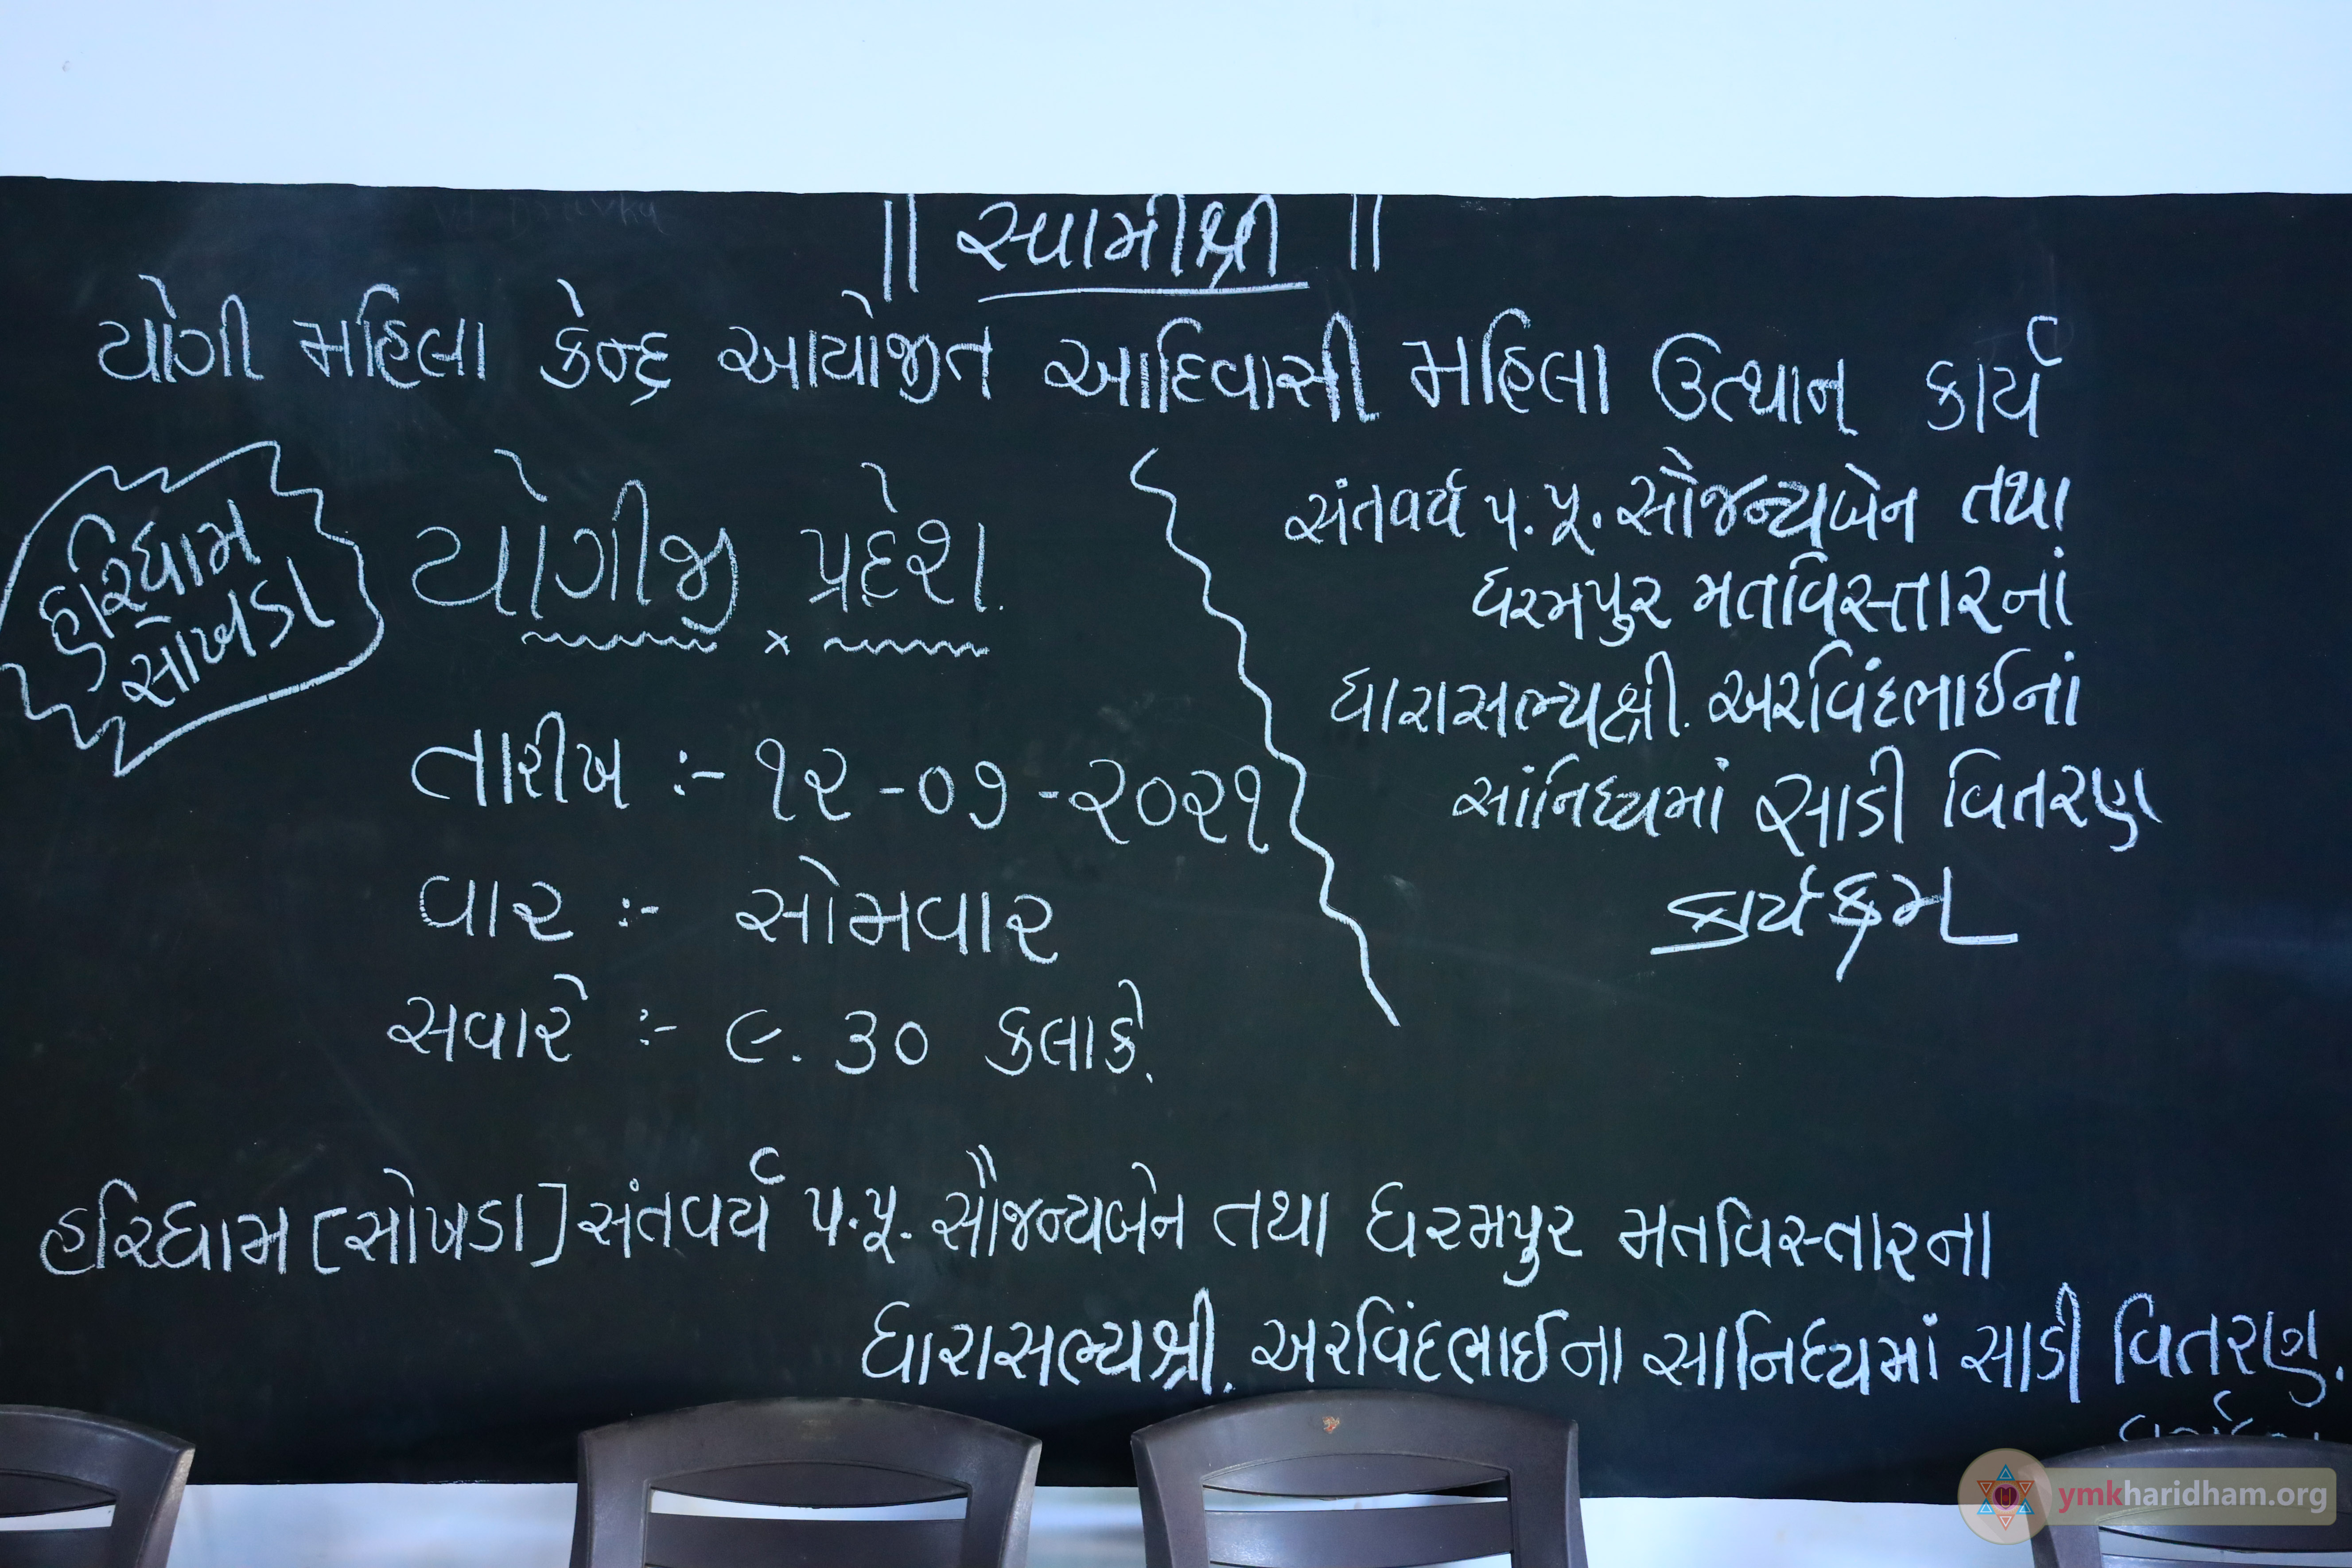 || સ્વામીશ્રી ||
યોગી મહિલા કેન્દ્ર આયોજીત આદિવાસી મહિલા ઉત્થાન કાર્ય
હરિધામ
સોખડા
યોગીજી પ્રદેશ.
તારીખ :- ૧૨-૦૭-૨૦૨૧
વાર :- સોમવાર
સવારે :- ૯.૩૦ કલાકે.
સંતવર્ય પ.પૂ. સૌજન્યબેન તથા
ધરમપુર મતવિસ્તારનાં
ધારાસભ્યશ્રી. અરવિંદભાઈનાં
સાંનિધ્યમાં સાડી વિતરણ
કાર્યક્રમ
હરિધામ [સોખડા] સંતવર્ય પ.પૂ. સૌજન્યબેન તથા ધરમપુર મતવિસ્તારના
ધારાસભ્યશ્રી. અરવિંદભાઈના સાનિધ્યમાં સાડી વિતરણ.
ymkharidham.org